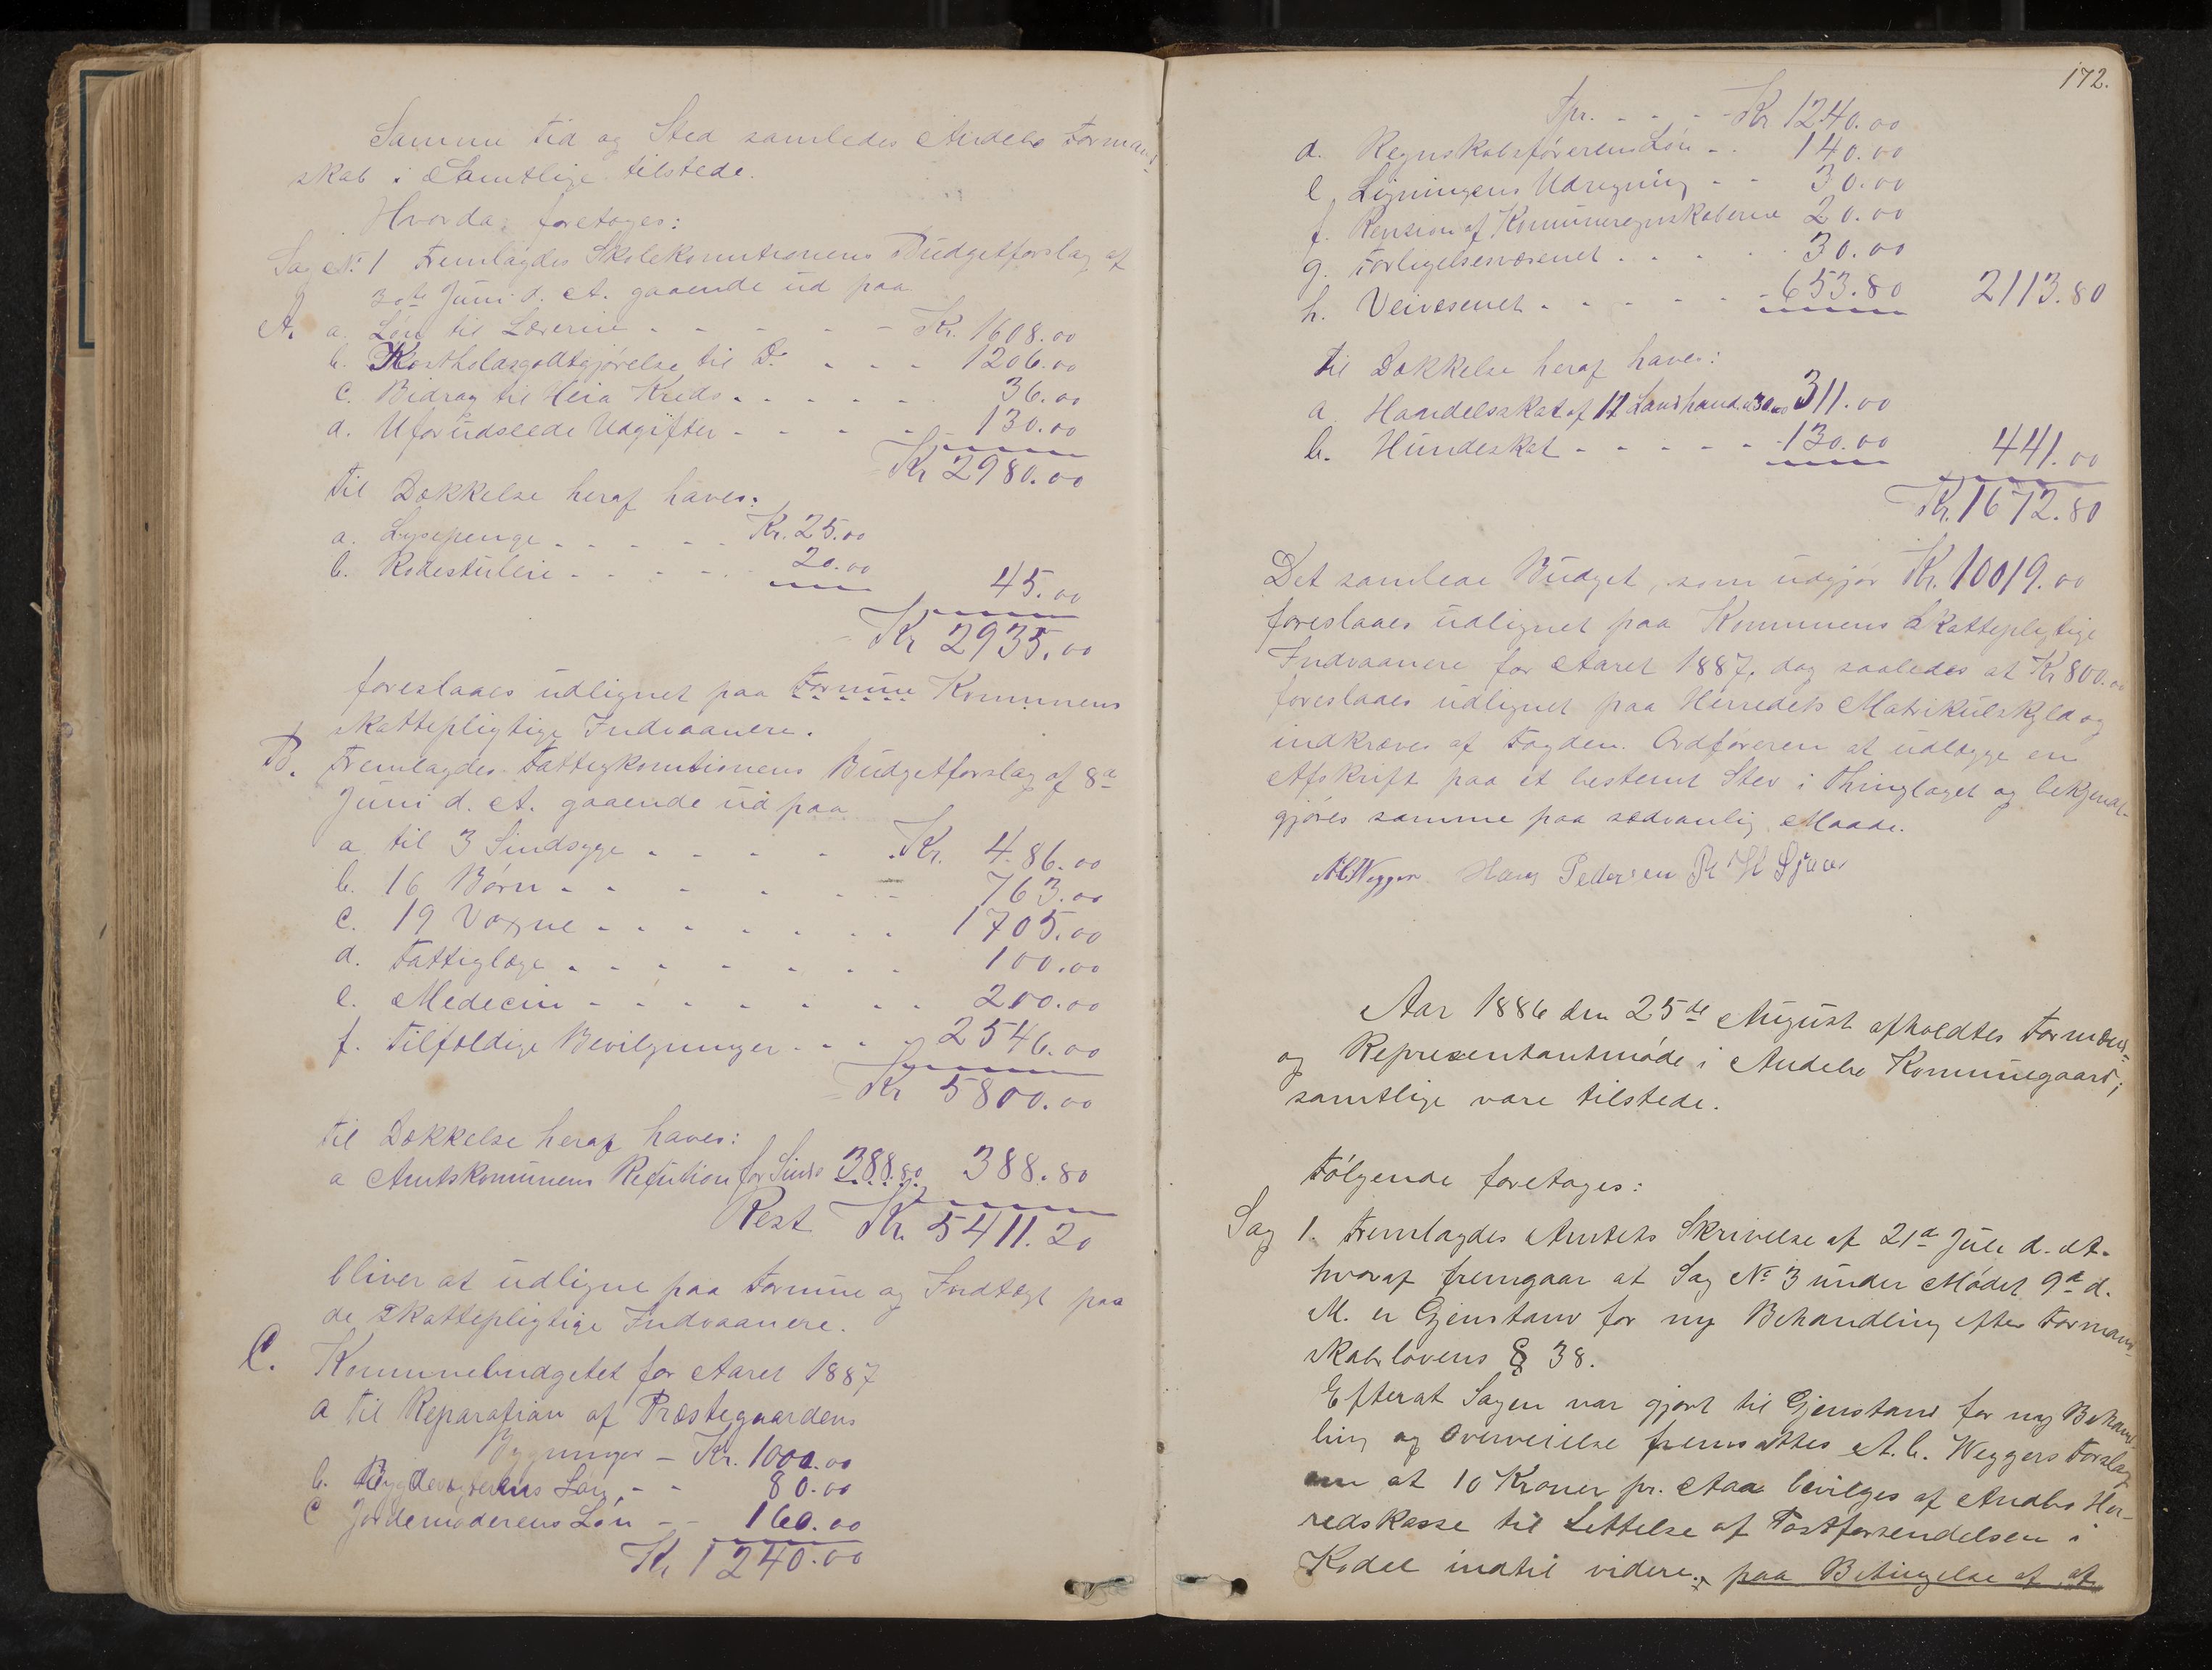 Samme tid og Sted samledes Andebo Formand-
skab i Samtlige tilstede.
Hvorda foretoges:
Sag №: 1 Fremlagdes Skolekomitionens Budgetforslag af
30te Juni d. A. gaaende ud paa
A. a. Løn til Lærerne - - - - - Kr. 1608.00
b. Kostholdsgodtgjørelse til Do. - - - 1206.00
c. Bidrag til Heia Kreds - - - - - 36.00
d. Uforudseede Udgifter - - - - 130.00
Kr 2980.00
til Dækkelse heraf haves:
a. Lysepenge - - - - - Kr. 25.00
b. Rodestulle - - - - - 20.00
45.00
Kr 2935.00
foreslaaes udlignet paa Formue Kommunens
skattepligtige Indvaanere.
B. Fremlagdes Fattigkomitionens Budgetforslag af 8de
Juni d. A. gaaende ud paa
a til 3 Sindsyge - - - - Kr. 486.00
b. 16 Børn - - - - - 763.00
c. 19 Voxne - - - - - - 1705.00
d. Fattiglæge - - - - - - 100.00
e. Medecin - - - - - - 200.00
f. tilfældige Bevilgninger - - - - 2546.00
Kr 5800.00
til Dækkelse heraf haves:
a Amtskommunens Refution for Sinds 388.80 388.80
Rest Kr. 5411.20
bliver at udligne paa Formue og Indtægt paa
de skattepligtige Indvaanere.
C. Kommunebudgetet for Aaret 1887
a til Reparation af Præstegaardens
Bygninger - Kr. 1000.00
b. Bygdevægterens Løn - - 80.00
c Jordemoderens Løn - - 160.00
Kr 1240.00
172.
Tpr. - - - - Kr 1240.00
d. Regnskabsførerens Løn - - 140.00
e. Ligningens Udregning - - 30.00
f. Revision af Komuneregnskaberne 20.00
g. Forligelsesvæsenet - - - - 30.00
h. Veivæsenet - - - - - - 653.80 2113.80
til Dækkelse heraf haves:
a Handelsskat af 12 Landhand. a 30.00 311.00
b. Hundeskat - - - - - 130.00 441.00
Kr. 1672.80
Det samlede Budget, som udgjør Kr. 10019.00
foreslaaes udlignet paa Kommunens Skattepligtige
Indvaanere for Aaret 1887, dog saaledes at Kr 800.00
foreslaaes udlignet paa Herredets Matrikulskyld og
indkræves af Fogden. Ordføreren at udlægge en
Afskrift paa et bestemt Sted i Thinglaget og bekjendt-
gjøres samme paa sædvanlig Maade.
Hans Pedersen
Aar 1886 den 25de August afholdtes Formænds-
og Representantmøde i Andebo Kommunegaard;
samtlige vare tilstede.
Følgende foretoges:
Sag 1. Fremlagdes Amtets Skrivelse af 21de Juli d. A.
hvoraf fremgaar at Sag № 3 under Mødet 9de d.
M. er Gjenstand for ny Behandling efter Formand-
skabslovens § 38.
Efterat Sagen var gjort til Gjenstand for ny Behand-
ling og Overveielse fremsattes A. C. Weggers Forslag
om at 10 Kroner pr. Aar bevilges af Andebo Her-
redskasse til Lettelse af Postforsendelsen i
Kodal indtil videre, paa Betingelse af at